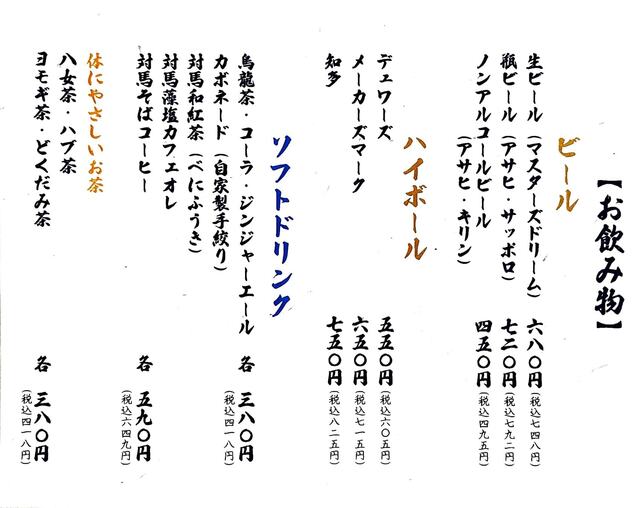 【お飲み物】
ビール
生ビール（マスターズドリーム） 六八〇円（税込七四八円）
瓶ビール（アサヒ・サッポロ） 七二〇円（税込七九二円）
ノンアルコールビール 四五〇円（税込四九五円）
（アサヒ・キリン）
ハイボール
デュワーズ 五五〇円（税込六〇五円）
メーカーズマーク 六五〇円（税込七一五円）
知多 七五〇円（税込八二五円）
ソフトドリンク
烏龍茶・コーラ・ジンジャーエール 各 三八〇円（税込四一八円）
カボネード（自家製手絞り）
対馬和紅茶（べにふうき）
対馬藻塩カフェオレ
対馬そばコーヒー 各 五九〇円（税込六四九円）
体にやさしいお茶
八女茶・ハブ茶
ヨモギ茶・どくだみ茶 各 三八〇円（税込四一八円）